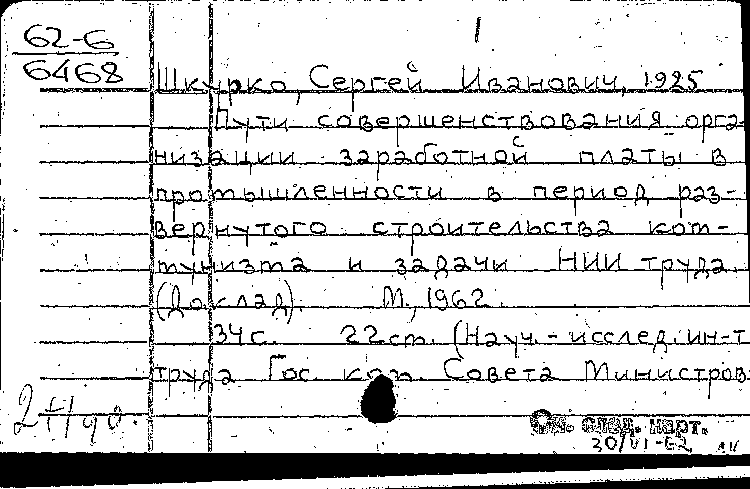 1
62-6
6468
Шкурко, Сергей Иванович, 1925
Пути совершенствования орга-
низации заработной платы в
промышленности в период раз-
вернутого строительства ком-
мунизма и задачи НИИ труда.
(Доклад). М., 1962.
34 с. 22 см. (Науч.-исслед. ин-т
труда Гос. ком. Совета Министров
См. след. карт.
30/VI-62